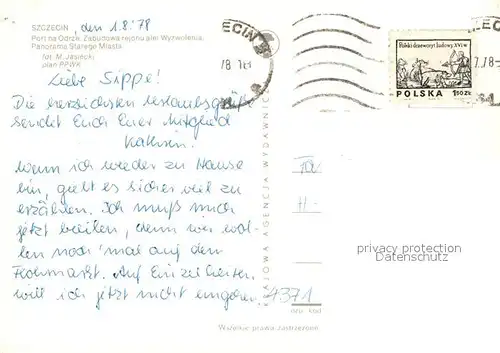 SZCZECIN, den 1.8.78
Port na Odrze. Zabudowa rejonu alei Wyzwolenia.
Panorama Starego Miasta
fot. M. Jasiecki
plan PPWK
Liebe Sippe!
Die herzlichsten Urlaubsgrüße
sendet Euch Euer Mitglied
Kathrin.
Wenn ich wieder zu Hause
bin, gibt es sicher viel zu
erzählen. Ich muß mich
jetzt beeilen, denn wir wol-
len noch 'mal auf den
Flohmarkt. Auf Einzelheiten
will ich jetzt nicht eingehen.
KRAJOWA AGENCJA WYDAWNIC
Wszelkie prawa zastrzeżone
ECIN
8 16
Polski drzeworyt ludowy XVI w.
POLSKA 1,50 ZŁ
ECIN
7.78-
privacy protection
Datenschutz
4371